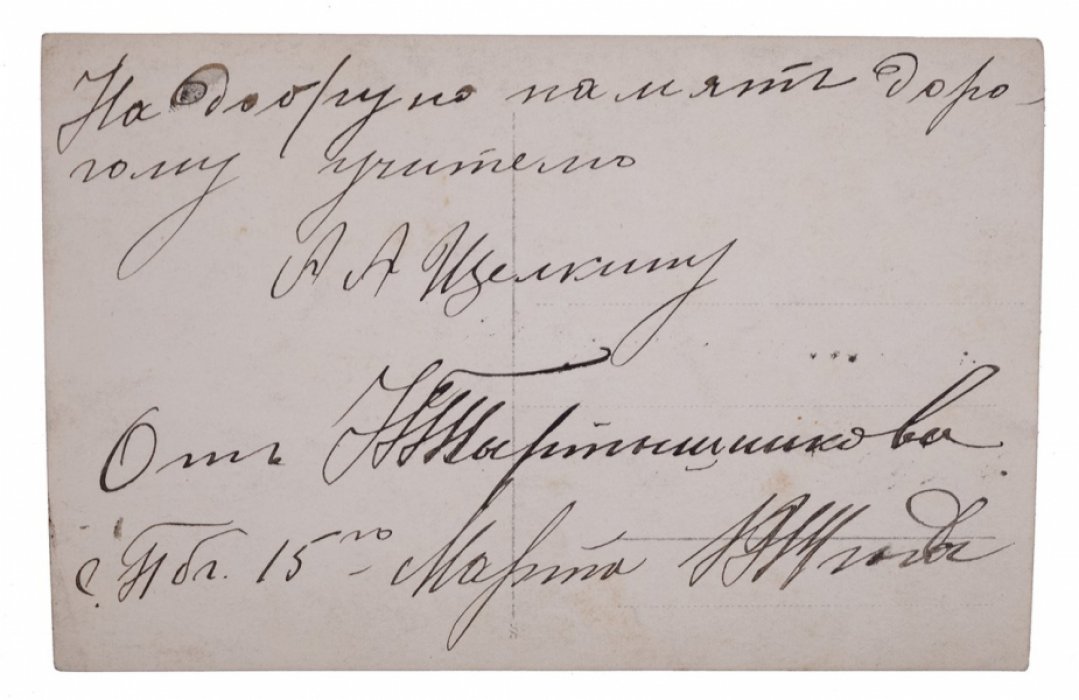 На добрую память доро-
гому учителю
А А Щелкину
Отъ Тартышникова
г. Пбг. 15го Марта